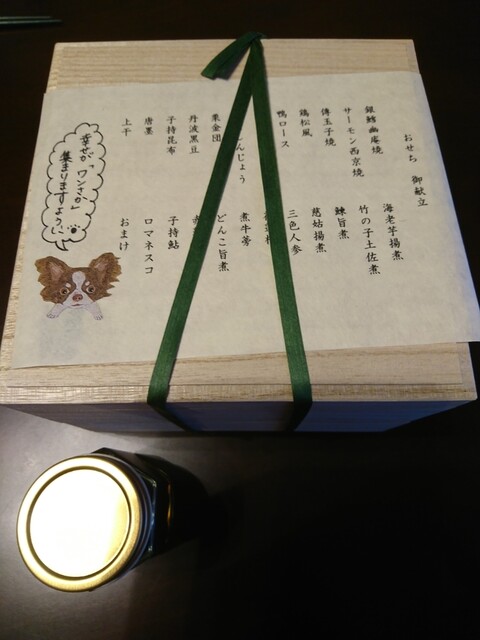 おせち 御献立
銀鱈幽庵焼
サーモン西京焼
傳玉子焼
鶏松風
鴨ロース
んじょう
栗金団
丹波黒豆
子持昆布
唐墨
上干
海老芋揚煮
竹の子土佐煮
鰊旨煮
慈姑揚煮
三色人参
煮牛蒡
どんこ旨煮
子持鮎
ロマネスコ
おまけ
幸せが「ワンさか」
集まりますように